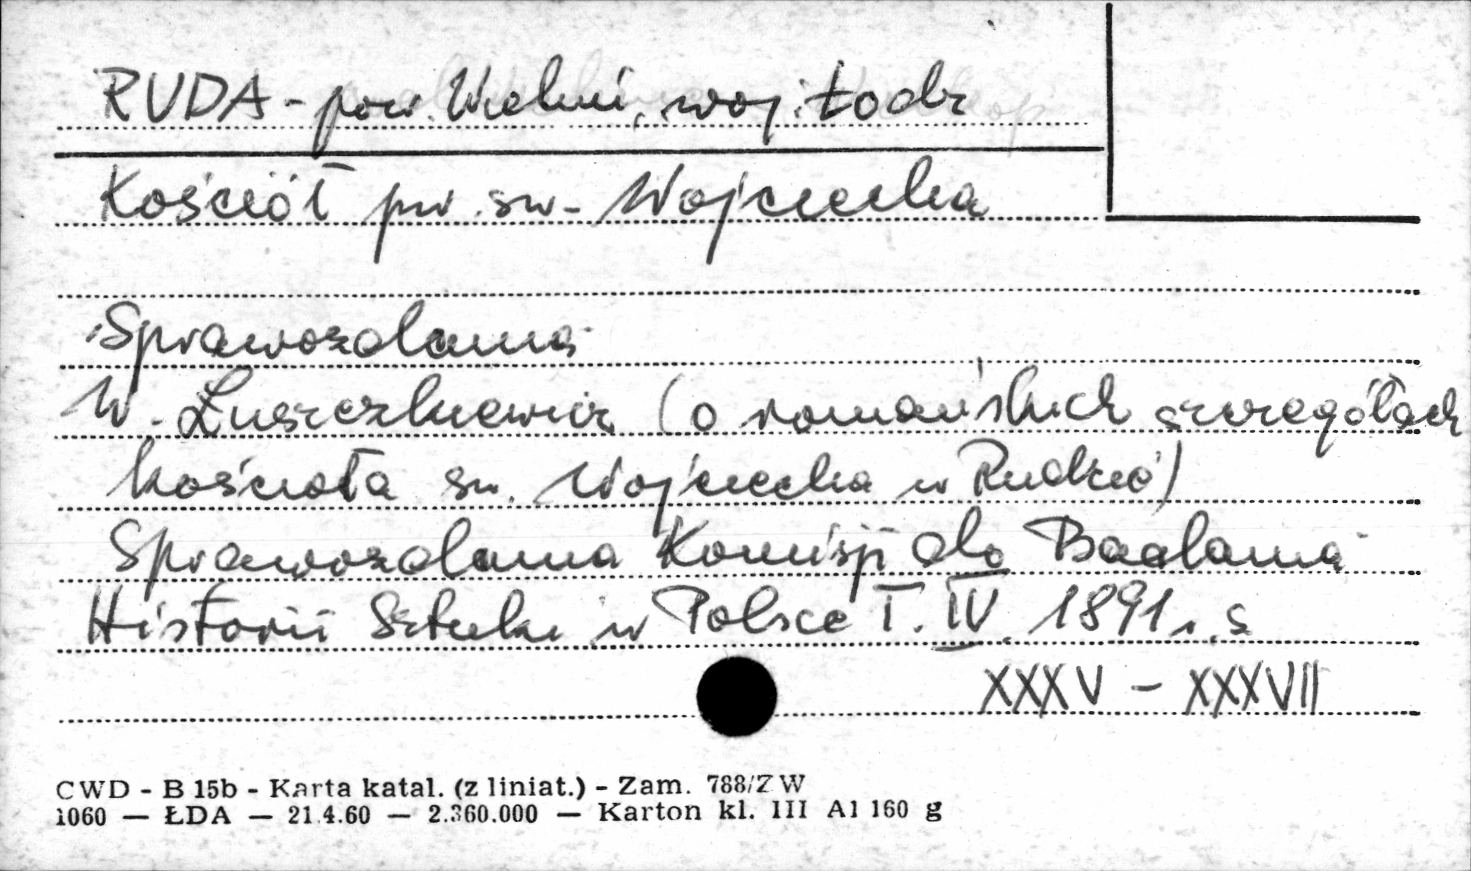 RUDA - pow. Wieluń, woj. Łódź
Kościół pw. św. Wojciecha
Sprawozdania
W. Łuszczkiewicz (o romańskich szczegółach
kościoła św. Wojciecha w Rudzie)
Sprawozdania Komisji do Badania
Historii Sztuki w Polsce T. IV. 1891 r. s
XXXV - XXXVII
CWD - B 15b - Karta katal. (z liniat.) - Zam. 788/ZW
1060 — ŁDA — 21.4.60 — 2.360.000 — Karton kl. III A1 160 g